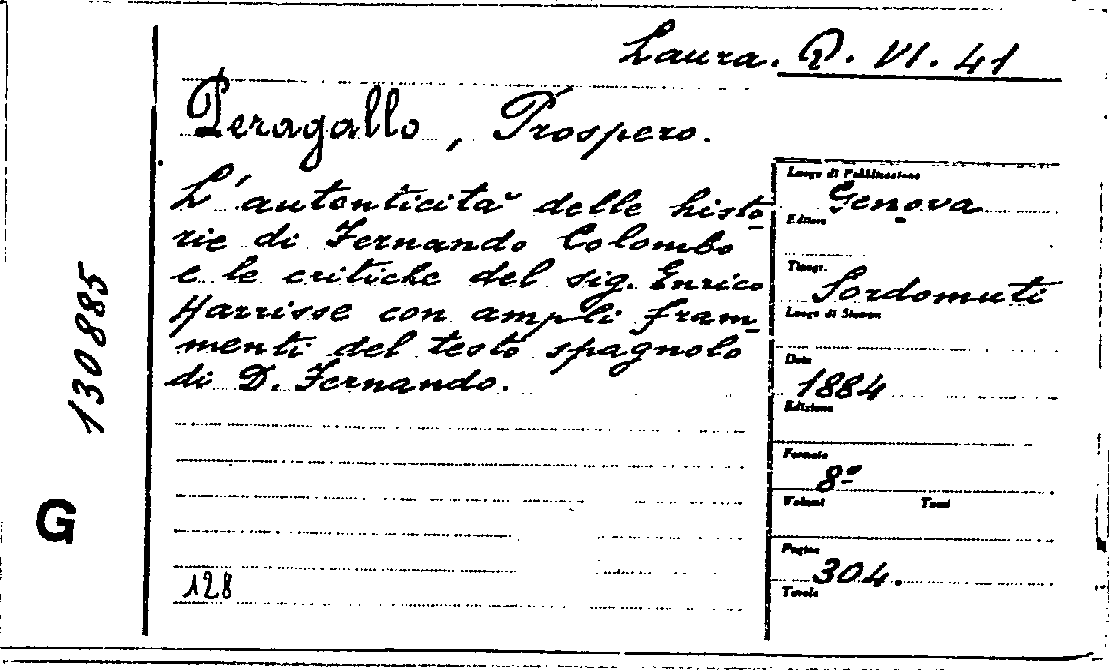 Laura. P. VI. 41
Peragallo, Prospero.
L'autenticità delle histo-
rie di Fernando Colombo
e le critiche del sig. Enrico
Harrisse con ampli fram-
menti del testo spagnolo
di D. Fernando.
Luogo di Pubblicazione
Genova
Editore
Tipogr.
Sordomuti
Luogo di Stampa
Data
1884
Edizione
Formato
8º
Volumi Tomi
Pagine
304.
Tavole
130885
G
128